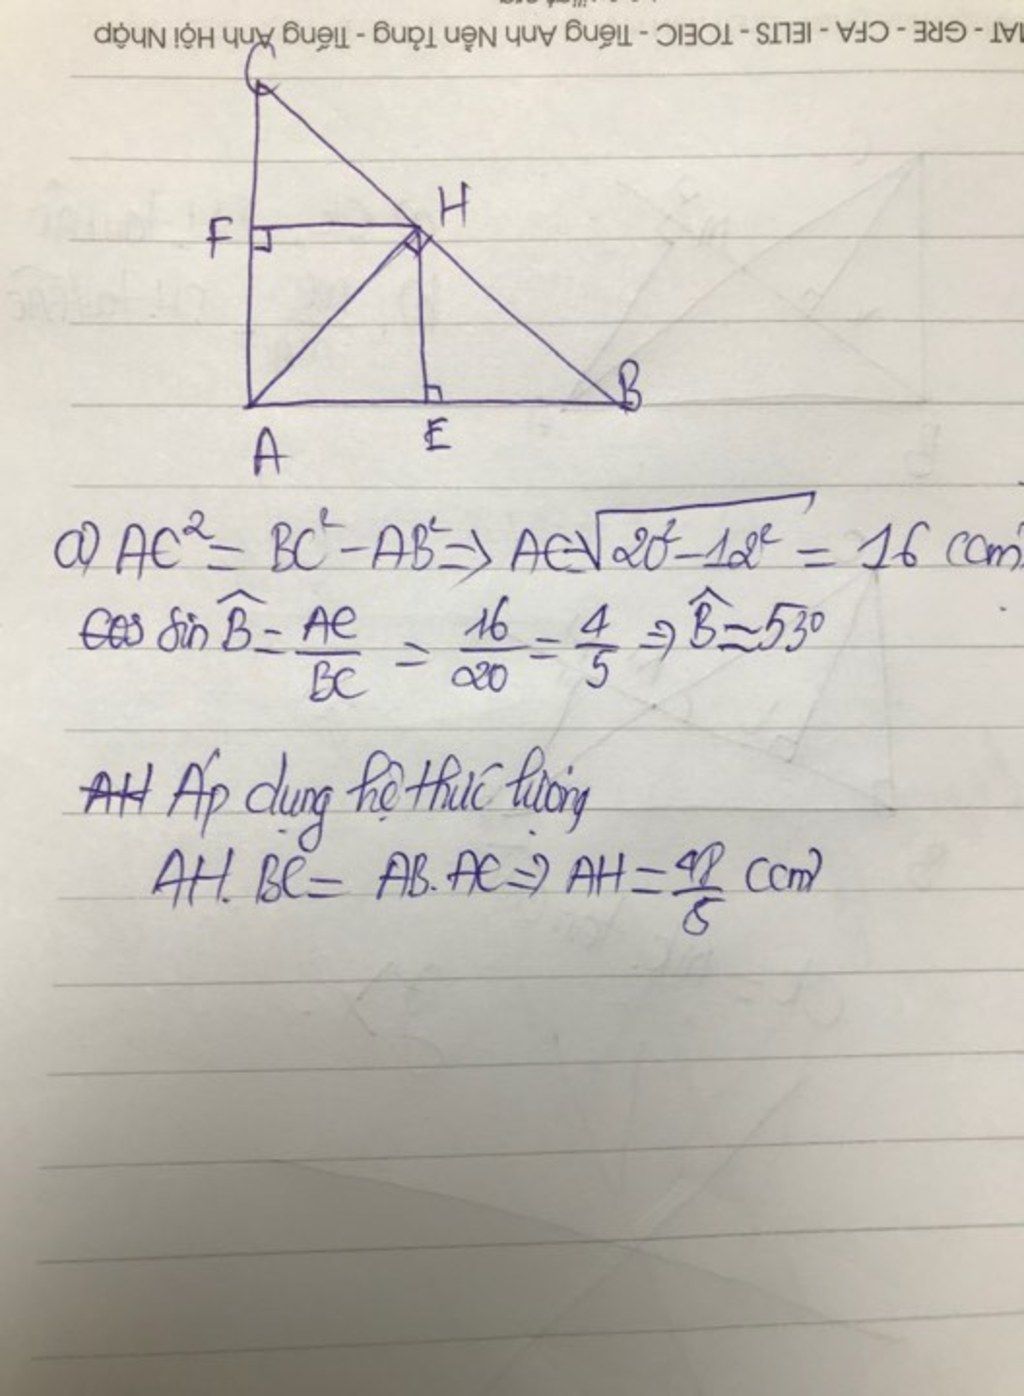 MAT - GRE - CFA - IELTS - TOEIC - Tiếng Anh Nền Tảng - Tiếng Anh Hội Nhập
C
H
F
B
A
E
a) AC² = BC² - AB² => AC = √20² - 12² = 16 (cm)
Cos Sin B̂ = AC/BC = 16/20 = 4/5 => B̂ ≈ 53°
AH Áp dụng hệ thức lượng
AH. BC = AB. AC => AH = 48/5 (cm)